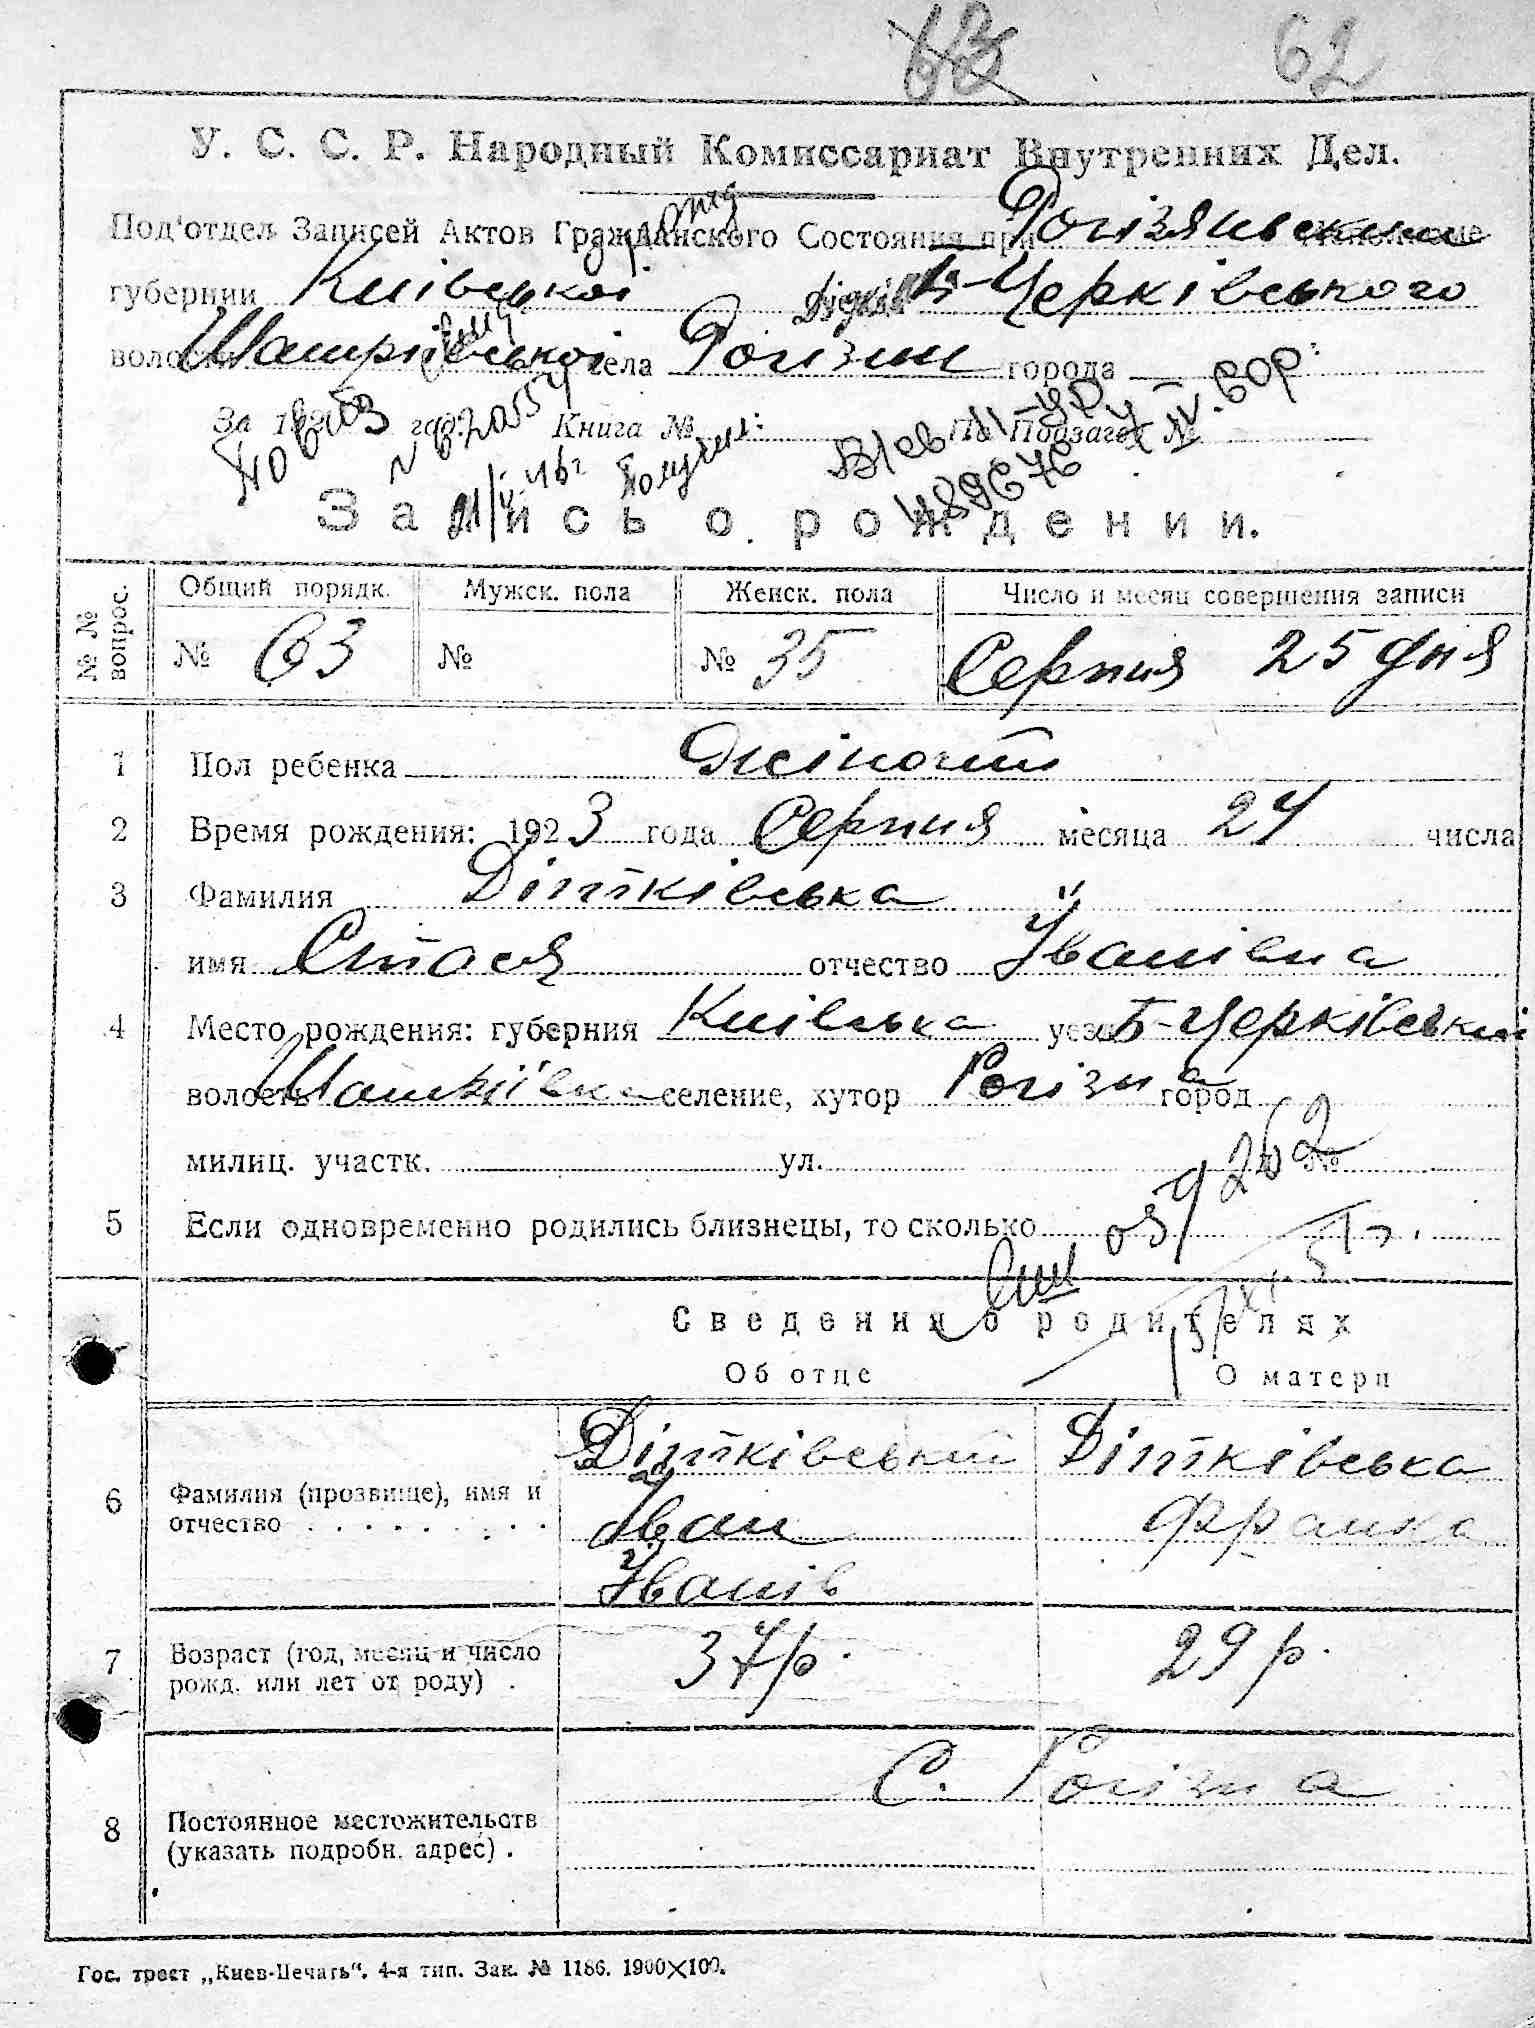 62
У. С. С. Р. Народный Комиссариат Внутренних Дел.
Под'отдел Записей Актов Гражданского Состояния при Рогізянському
губернии Київської Б-Черківського
волости села Рогізни города
За 192 год. Книга № По Подзагсу №
21/V-46г
Запись о рождении.
№№ вопрос. Общий порядк. Мужск. пола Женск. пола Число и месяц совершения записи
№ 63 № № 35 Серпня 25 дня
1 Пол ребенка Жіночий
2 Время рождения: 1923 года Серпня месяца 24 числа
3 Фамилия Дітківська
имя Стася отчество Іванівна
4 Место рождения: губерния Київська уезд Б-Черківський
волость селение, хутор Рогізна город
милиц. участк. ул. №
5 Если одновременно родились близнецы, то сколько
Сведения о родителях
Об отце О матери
Дітківський Дітківська
6 Фамилия (прозвище), имя и отчество Іван Франка
Іванів
7 Возраст (год, месяц и число рожд. или лет от роду) 37р. 29р.
С. Рогізна
8 Постоянное местожительств (указать подробн. адрес)
Гос. трест „Киев-Печать“. 4-я тип. Зак. № 1186. 1900×100.